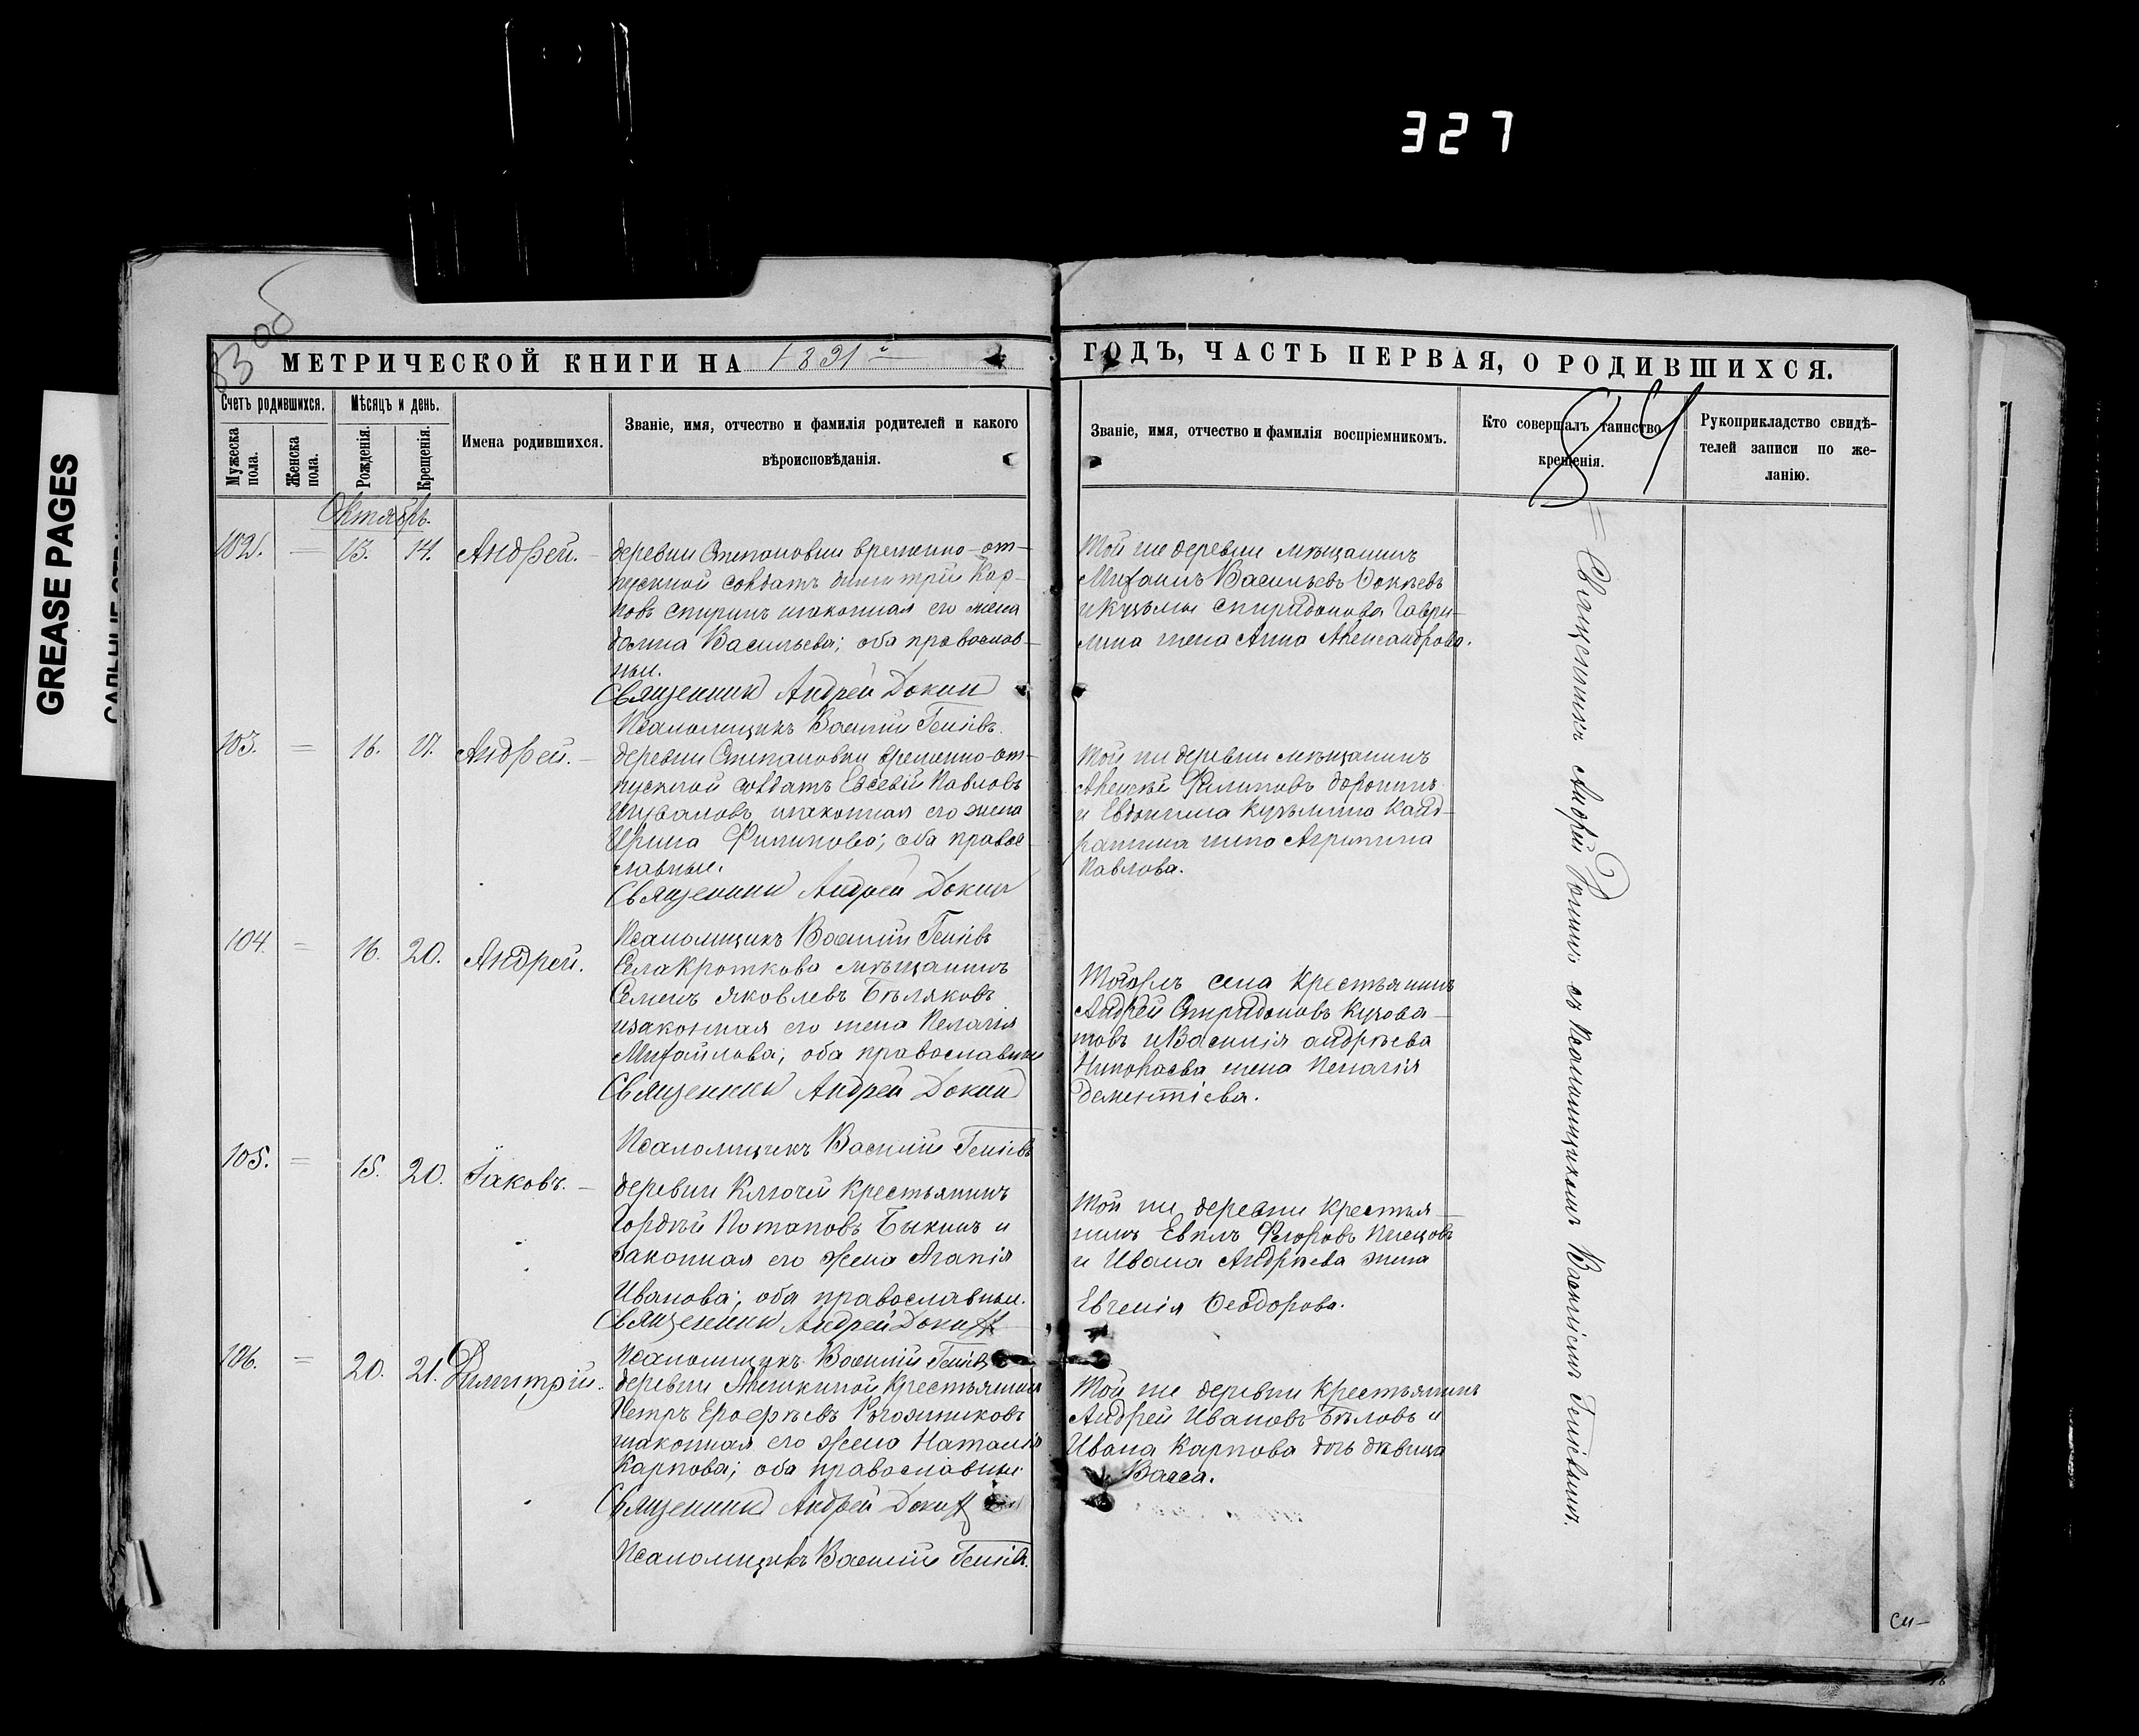 327
GREASE PAGES
83 об
МЕТРИЧЕСКОЙ КНИГИ НА 1891 й
ГОДЪ, ЧАСТЬ ПЕРВАЯ, О РОДИВШИХСЯ.
84
Счетъ родившихся.
Мужеска пола.
Женска пола.
Мѣсяцъ и день.
Рожденія.
Крещенія.
Имена родившихся.
Званіе, имя, отчество и фамилія родителей и какого
вѣроисповѣданія.
Званіе, имя, отчество и фамилія воспріемникомъ.
Кто совершалъ таинство
крещенія.
Рукоприкладство свидѣ-
телей записи по же-
ланію.
Октябрь.
102. — 13. 14. Андрей. —
деревни Степановки временно-от-
пускной солдатъ Димитрій Кар-
повъ Спиринъ изаконная его жена
Васильева; оба православ-
ныи.
Священникъ Андрей Докин
Псаломщикъ Василій
Той же деревни мѣщанинъ
Михаилъ Васильевъ
и Кузьмы Спиридонова Гаври-
лина жена Анна Александрова.
103. = 16. 17. Андрей. —
деревни Степановки временно-от-
пускной солдатъ Евсевій Павловъ
Шуваловъ изаконная его жена
Ирина Филипова; оба право-
славные.
Священникъ Андрей Докин
Псаломщикъ Василій
Той же деревни мѣщанинъ
Алексѣй Филиповъ Доронинъ
и Евдокима Кузьмина
жена Агрипина
Павлова.
104. = 16. 20. Андрей.
Села Кроткова мѣщанинъ
Семенъ Яковлевъ Бѣляковъ
изаконная его жена Пелагія
Михайлова; оба православныи
Священникъ Андрей Докин
Псаломщикъ Василій
Тогожъ села крестьянинъ
Андрей Спиридоновъ Кузова-
товъ и Василія Андрѣева
Николаева жена Пелагія
Дементіева.
105. = 15. 20. Іаковъ. —
деревни Ключей крестьянинъ
Гордѣй Потаповъ Быкинъ и
законная его жена Агапія
Иванова; оба православныи.
Священникъ Андрей Докин
Псаломщикъ Василій
Той же деревни крестья-
нинъ Евплъ Федоровъ
и Ивана Андрѣева жена
Евгенія Ѳеодорова.
106. = 20. 21. Димитрій.
деревни Алешкиной крестьянинъ
Петръ Ерофѣевъ Рогожниковъ
изаконная его жена Наталія
Карпова; оба православныи
Священникъ Андрей Докин
Псаломщикъ Василій
Той же деревни крестьянинъ
Андрей Ивановъ Бѣловъ и
Ивана Карпова дочь дѣвица
Васса.
= Священникъ Андрей съ Псаломщикомъ Василіемъ
Си-